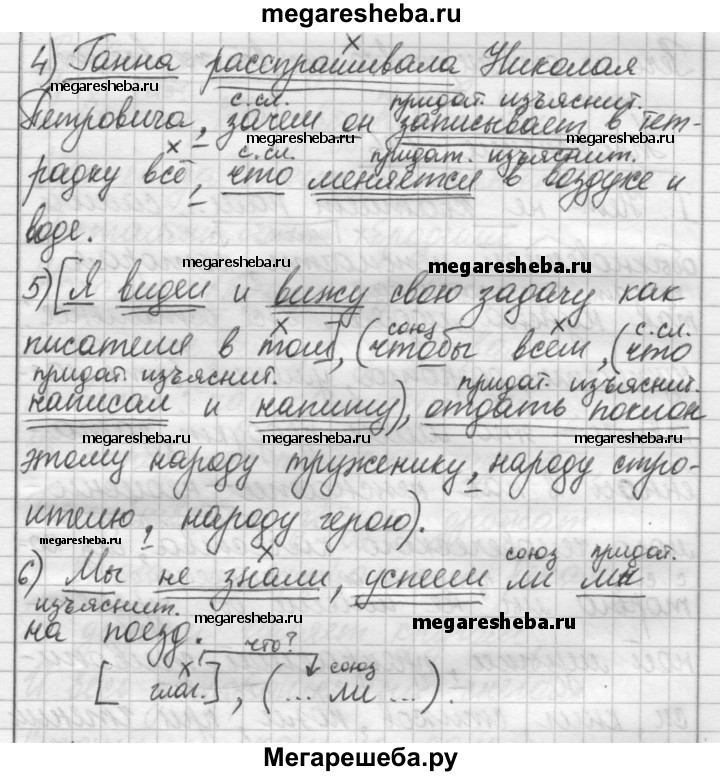 megaresheba.ru
х
4) Ганна расспрашивала Николая
megaresheba.ru с.сл. придат. изъяснит.
Петровича, зачем он записывает в тет-
х с.сл. придат. изъяснит.
радку всё, что меняется в воздухе и
воде.
megaresheba.ru megaresheba.ru
5) [Я видел и вижу свою задачу как
х союз х с.сл.
писателя в том], (чтобы всем, (что
придат. изъяснит. придат. изъяснит.
написал и напишу), отдать поклон
megaresheba.ru megaresheba.ru
этому народу труженику, народу стро-
ителю, народу герою).
megaresheba.ru х союз придат.
6) Мы не знали, успеем ли мы
изъяснит.
на поезд.
megaresheba.ru megaresheba.ru
что?
х союз
[ глаг.], (... ли ...).
megaresheba.ru
Мегарешеба.ру